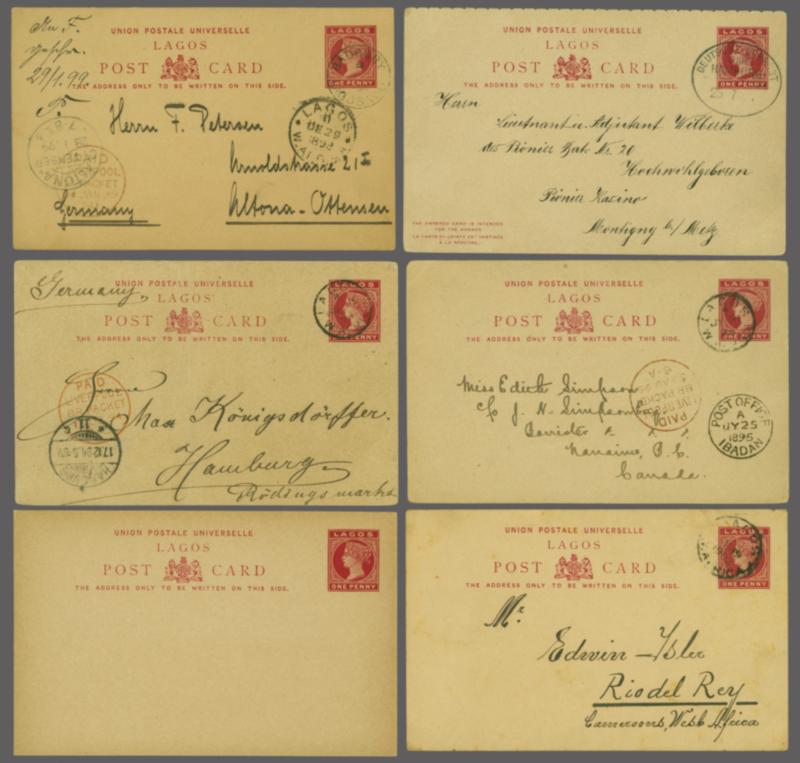 29/1.99.
UNION POSTALE UNIVERSELLE
LAGOS
POST CARD
THE ADDRESS ONLY TO BE WRITTEN ON THIS SIDE.
LAGOS
ONE PENNY
LAGOS
DE 29
1898
Herrn F. Petersen
Arnoldstrasse 21 I
Altona-Ottensen
Germany
UNION POSTALE UNIVERSELLE
LAGOS
POST CARD
THE ADDRESS ONLY TO BE WRITTEN ON THIS SIDE.
ONE PENNY
Herrn
Lieutnant u. Adjutant
des Pionier Batls Nr. 20
Hochwohlgeboren
Pionier Kasino
Montigny b/ Metz
THE ANNEXED CARD IS INTENDED
FOR THE ANSWER
LA CARTE CI-JOINTE EST DESTINÉE
À LA RÉPONSE.
Germany
UNION POSTALE UNIVERSELLE
LAGOS
POST CARD
THE ADDRESS ONLY TO BE WRITTEN ON THIS SIDE.
ONE PENNY
PAID
LIVERPOOL
BR PACKET
Max Königsdörffer.
Hamburg
Rödingsmarkt
UNION POSTALE UNIVERSELLE
LAGOS
POST CARD
THE ADDRESS ONLY TO BE WRITTEN ON THIS SIDE.
ONE PENNY
Miss Edith Simpson
c/o J. H. Simpson
Barrister
Nanaimo, B.C.
Canada.
PAID
LIVERPOOL
BR PACKET
POST OFFICE
A
JY 25
1895
IBADAN
UNION POSTALE UNIVERSELLE
LAGOS
POST CARD
THE ADDRESS ONLY TO BE WRITTEN ON THIS SIDE.
LAGOS
ONE PENNY
UNION POSTALE UNIVERSELLE
LAGOS
POST CARD
THE ADDRESS ONLY TO BE WRITTEN ON THIS SIDE.
ONE PENNY
Mr.
Edwin
Rio del Rey
Camerons, West Africa